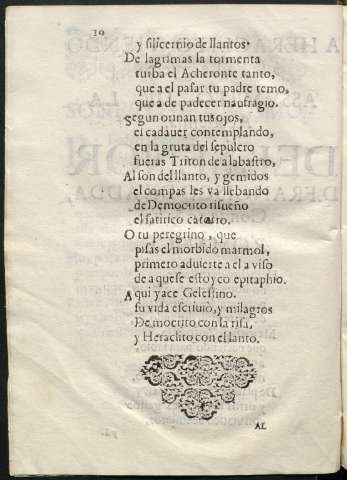 30
y silicernio de llantos.
De lagrimas la tormenta
turba el Acheronte tanto,
que a el pasar tu padre temo,
que a de padecer naufragio.
Segun orinan tus ojos,
el cadauer contemplando,
en la gruta del sepulcro
fueras Triton de alabastro,
Al son del llanto, y gemidos
el compas les va llebando
de Democtito risueño
el satirico
O tu peregrino, que
pisas el morbido marmol,
primero aduierte a el a viso
de aquese estoyco epitaphio.
Aqui yace Celestino.
su vida escriuiò, y milagros
Democrito con la risa,
y Heraclito con el lanto.
AL